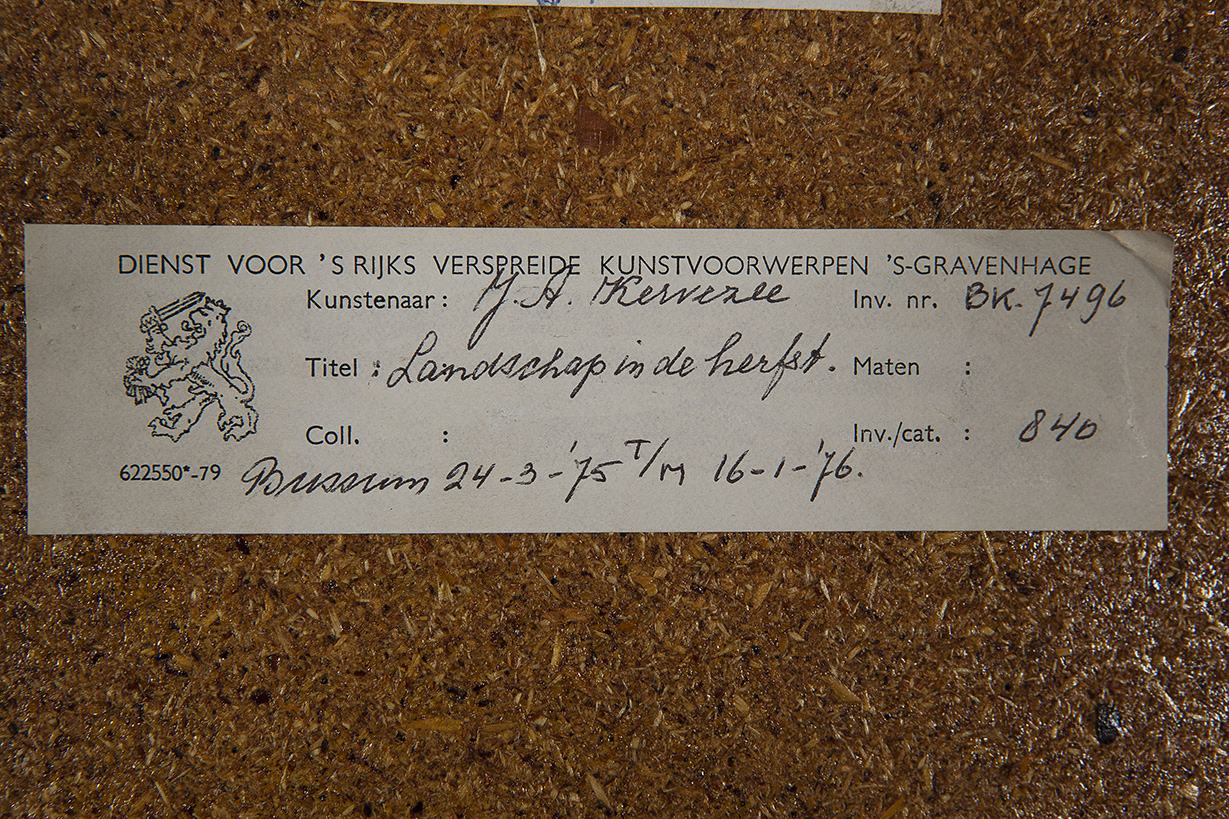 DIENST VOOR 'S RIJKS VERSPREIDE KUNSTVOORWERPEN 'S-GRAVENHAGE
Kunstenaar: J. A. Kervezee Inv. nr. BK. 7496
Titel : Landschap in de herfst. Maten :
Coll. : Inv./cat. : 840
622550*-79 Bussum 24-3-'75 T/M 16-1-'76.